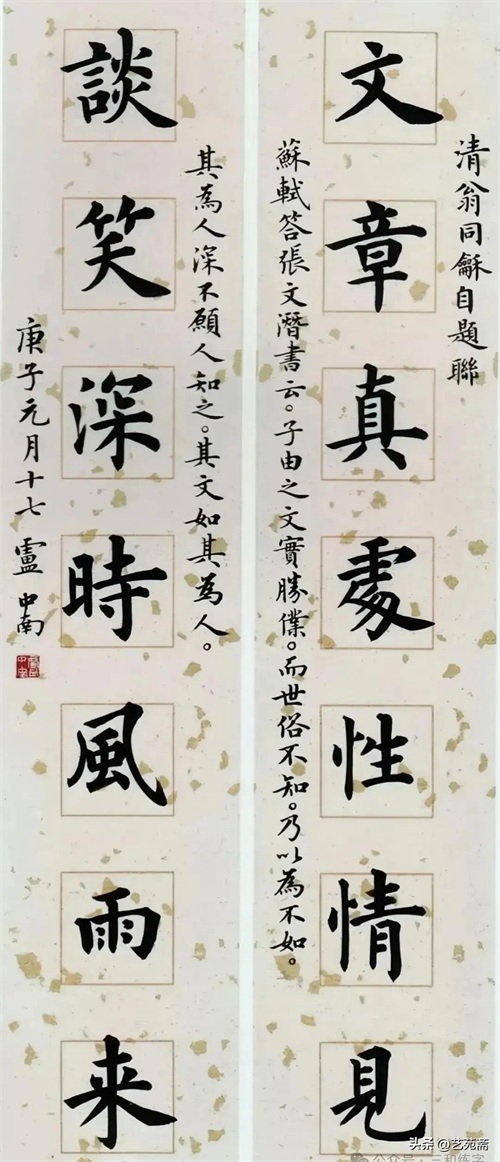 清翁同龢自題聯
文章真處性情見
蘇軾答張文潛書云。子由之文實勝僕。而世俗不知。乃以為不如。
其為人深不願人知之。其文如其為人。
談笑深時風雨来
庚子元月十七 盧中南
公众号·一和练字
头条 @艺苑斋